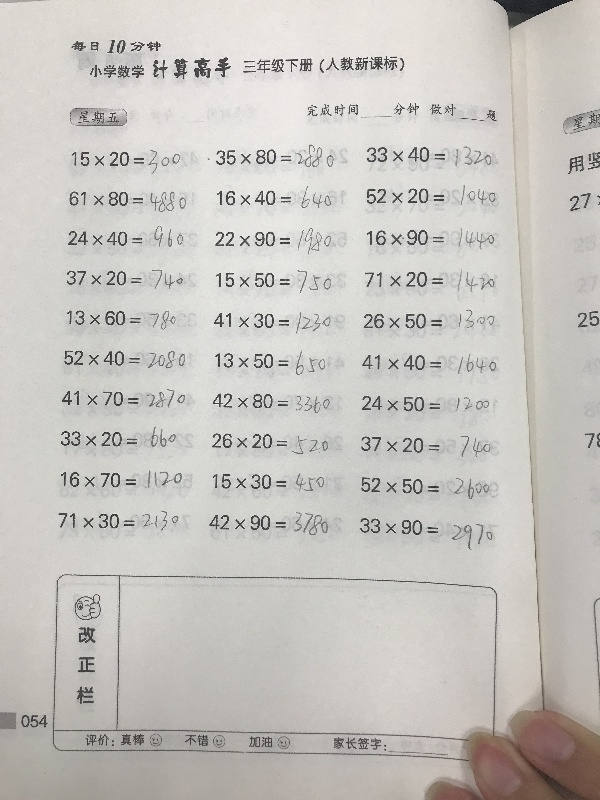 每日10分钟
小学数学 计算高手 三年级下册(人教新课标)
星期五 完成时间____分钟 做对____题
15×20=300 35×80=2880 33×40=1320
61×80=4880 16×40=640 52×20=1040
24×40=960 22×90=1980 16×90=1440
37×20=740 15×50=750 71×20=1420
13×60=780 41×30=1230 26×50=1300
52×40=2080 13×50=650 41×40=1640
41×70=2870 42×80=3360 24×50=1200
33×20=660 26×20=520 37×20=740
16×70=1120 15×30=450 52×50=2600
71×30=2130 42×90=3780 33×90=2970
改正栏
评价:真棒 不错 加油 家长签字:
054
星期
用竖
27
25
78